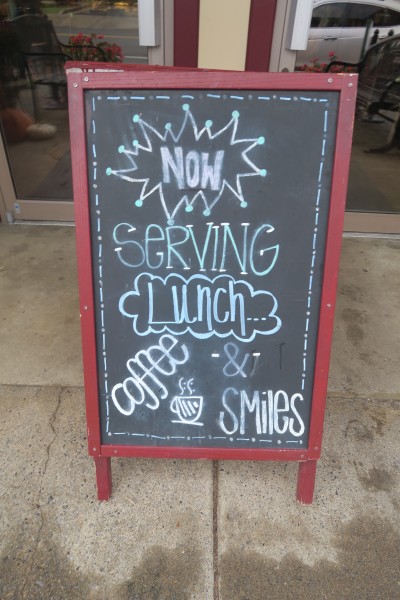 NOW
SERVING
Lunch...
coffee -&-
SMiles